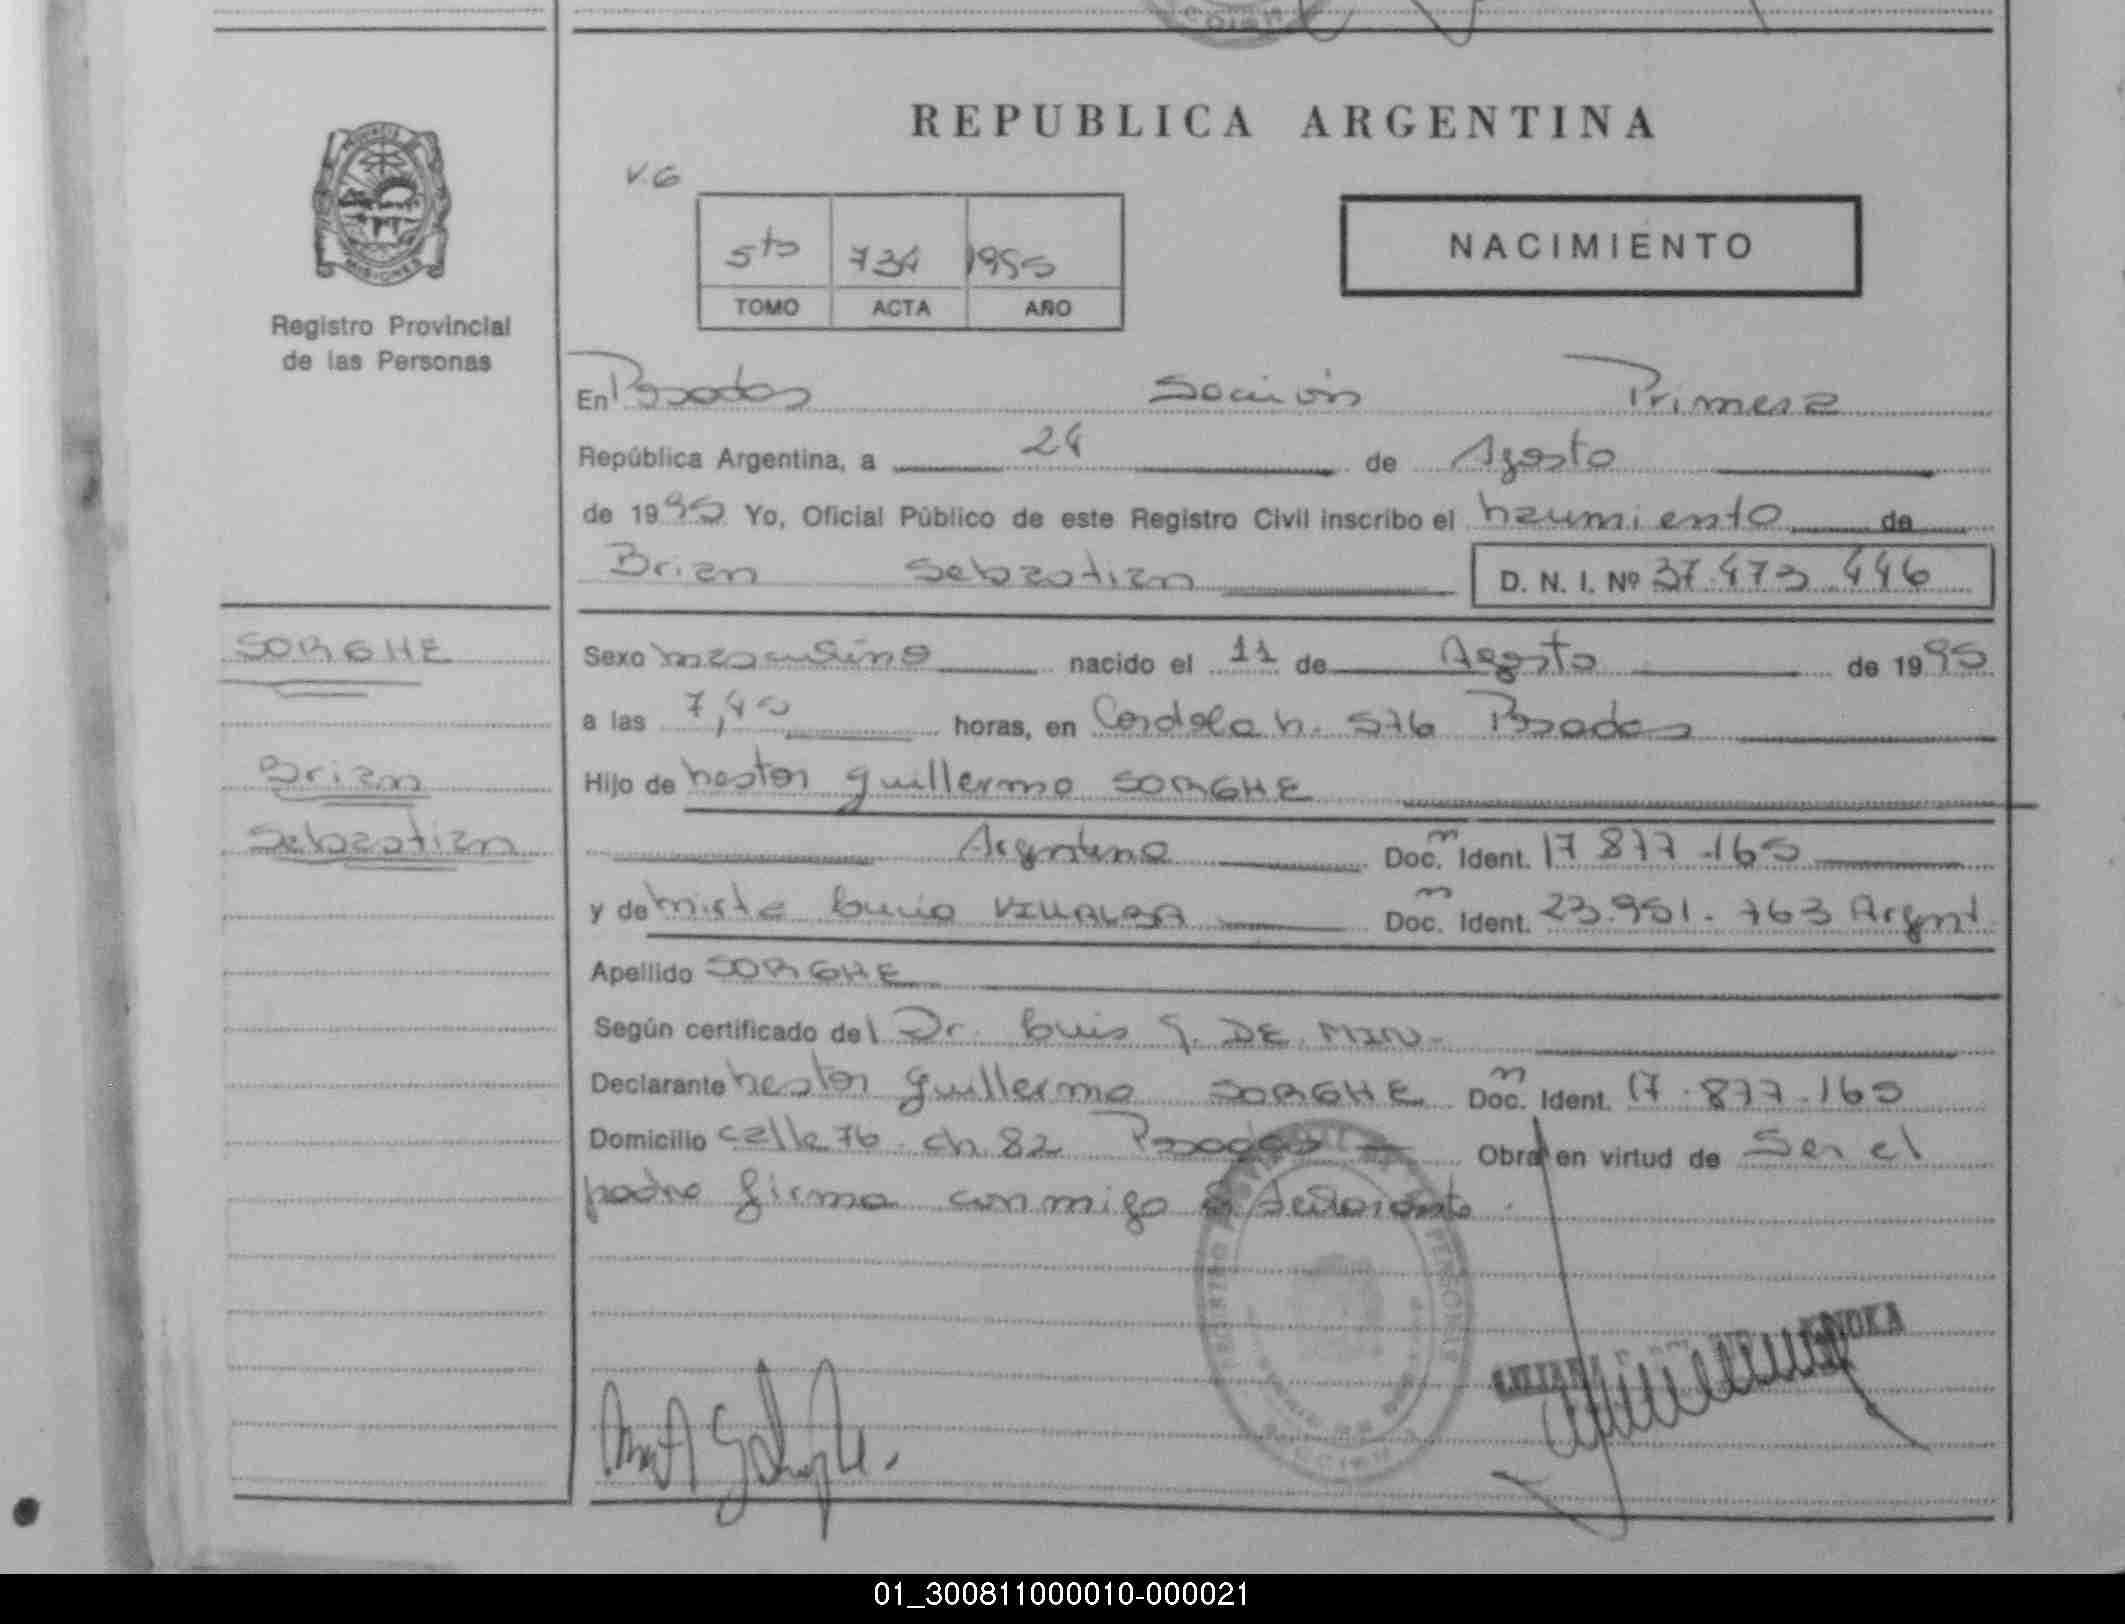 REPUBLICA ARGENTINA
V.G
5to 734 1995
TOMO ACTA AÑO
NACIMIENTO
MISIONES
Registro Provincial
de las Personas
En Posadas Sección Primera
República Argentina, a 24 de Agosto
de 1995 Yo, Oficial Público de este Registro Civil inscribo el nacimiento de
Brian Sebastian D. N. I. Nº 37.473.446
SORGHE
Sexo masculino nacido el 11 de Agosto de 1995
a las 7,45 horas, en 576 Posadas
Brian
Hijo de Nestor Guillermo SORGHE
Sebastian
Argentino Doc. Ident. 17 877.165
y de Mirta Lucia VILLALBA Doc. Ident. 23.951.763 Argent.
Apellido SORGHE
Según certificado del Dr. Luis G. DE MIN.
Declarante Nestor Guillermo SORGHE Doc. Ident. 17.877.165
Domicilio calle 76 ch 82 Posadas Obra en virtud de Ser el
padre firma conmigo
01_300811000010-000021